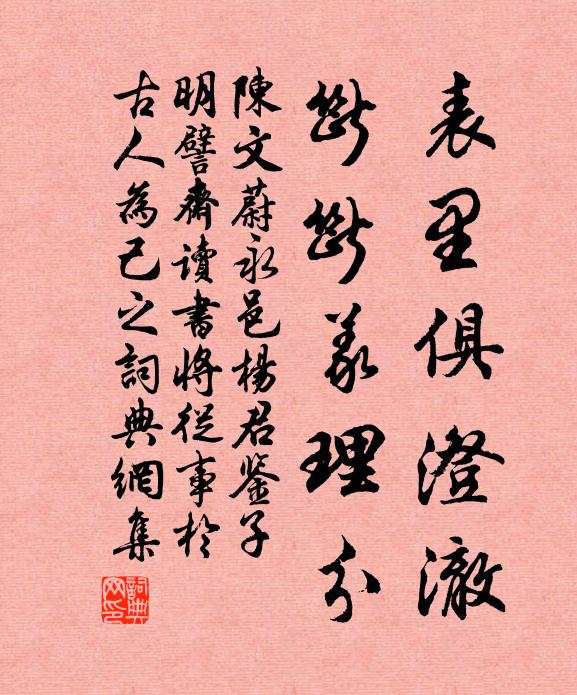 表里俱澄澈
斷斷義理分
陳文蔚永邑楊君鉴子
明譬齋讀書將從事於
古人為己之詞典網集
詞典網印